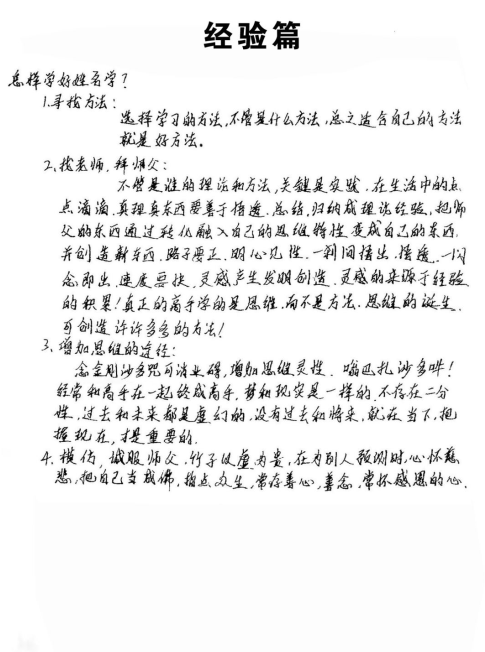 经验篇
怎样学好姓名学?
1.寻找方法:
选择学习的方法,不管是什么方法,总之适合自己的方法
就是好方法。
2、找老师,拜师父:
不管是谁的理论和方法,关键是实践,在生活中的点
点滴滴,真理真东西要善于悟透、总结、归纳成理论经验,把师
父的东西通过转化融入自己的思维特性变成自己的东西,
并创造新东西,路子要正,明心见性,一刹间悟出,悟透,一闪
念即出,速度要快,灵感产生发明创造,灵感的来源于经验
的积累!真正的高手学的是思维,而不是方法,思维的诞生,
可创造许许多多的方法!
3、增加思维的途径:
念金刚沙多咒可消业碍,增加思维灵性,嗡巴扎沙多吽!
经常和高手在一起终成高手,梦和现实是一样的,不存在二分
性,过去和未来都是虚幻的,没有过去和将来,就在当下,把
握现在,才是重要的。
4、模仿,诚服师父,竹子以虚为贵,在为别人预测时,心怀慈
悲,把自己当成佛,指点众生,常存善心,善念,常怀感恩的心.